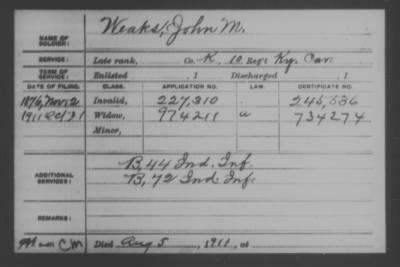 NAME OF SOLDIER: Weaks, John M.
SERVICE: Late rank, Co. K, 10 Reg't Ky. Cav.
TERM OF SERVICE: Enlisted , 1 Discharged , 1
DATE OF FILING. CLASS. APPLICATION NO. LAW. CERTIFICATE NO.
1876, Nov. 2 Invalid, 227,310 245,536
1911 Oct 21 Widow, 974211 a 734274
Minor,
ADDITIONAL SERVICES: B, 44 Ind. Inf.
B, 72 Ind. Inf.
REMARKS:
C M Died Aug 5, 1911, at